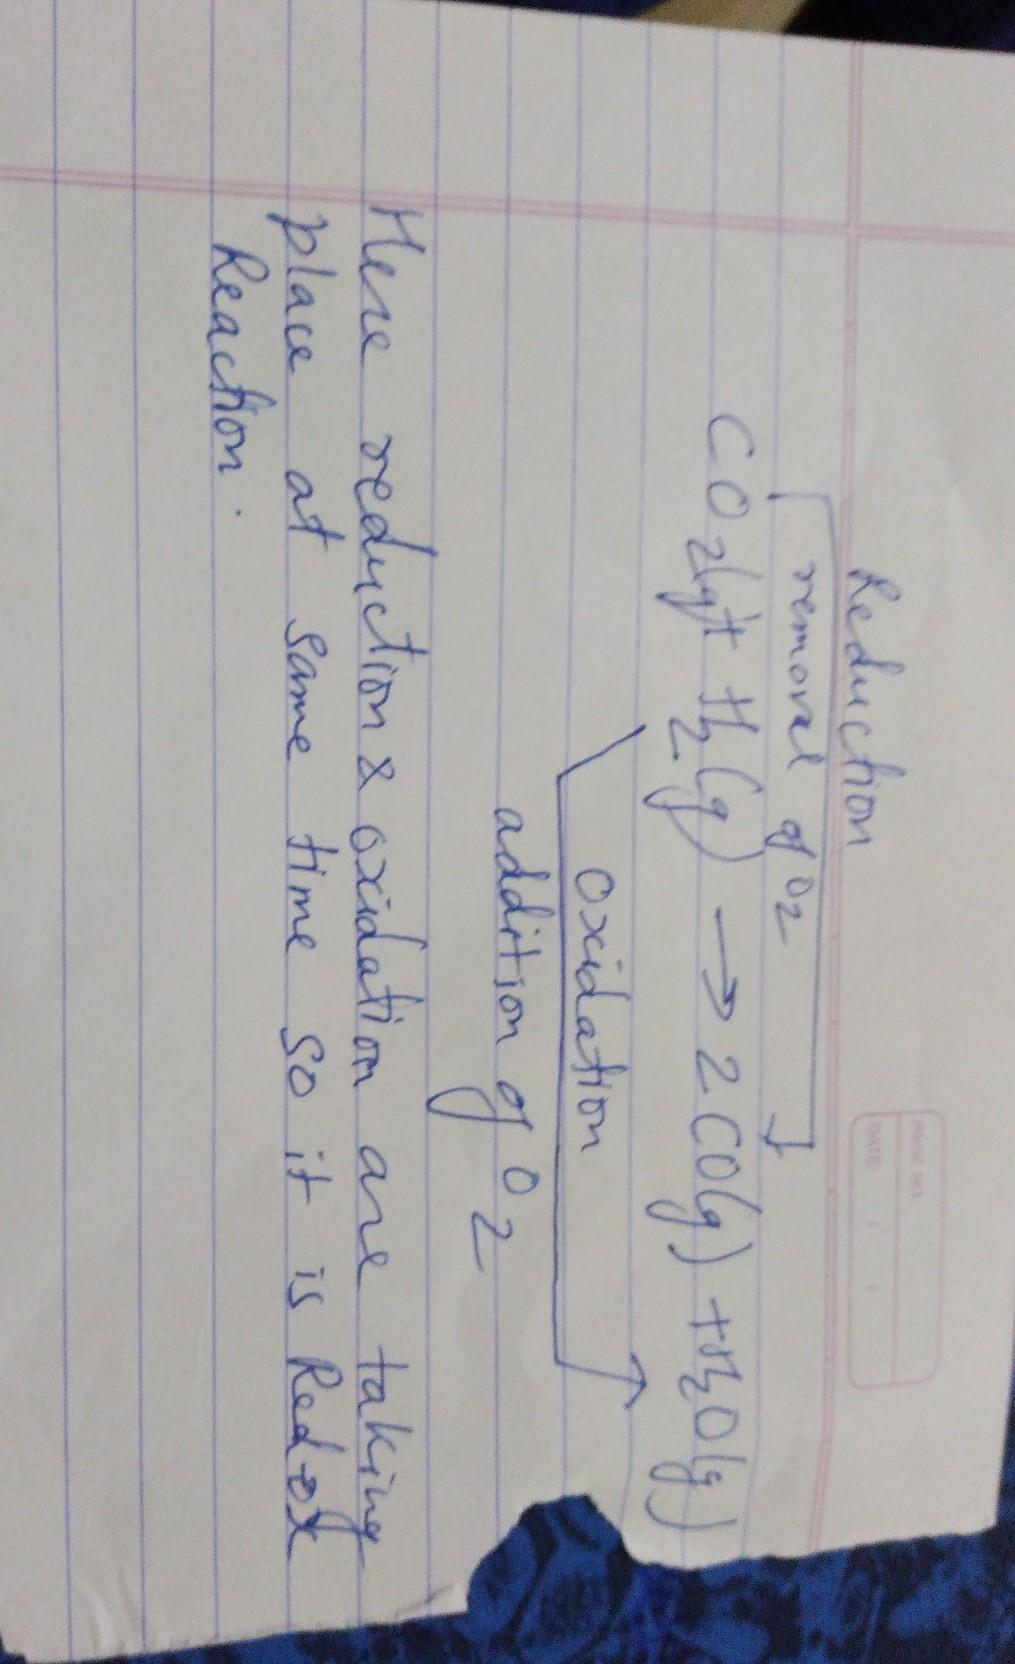 PAGE NO.
DATE / /
Reduction
removal of O2
CO2(g) + H2(g) → 2CO(g) + H2O(g)
oxidation
addition of O2
Here reduction & oxidation are taking
place at same time so it is Redox
Reaction.